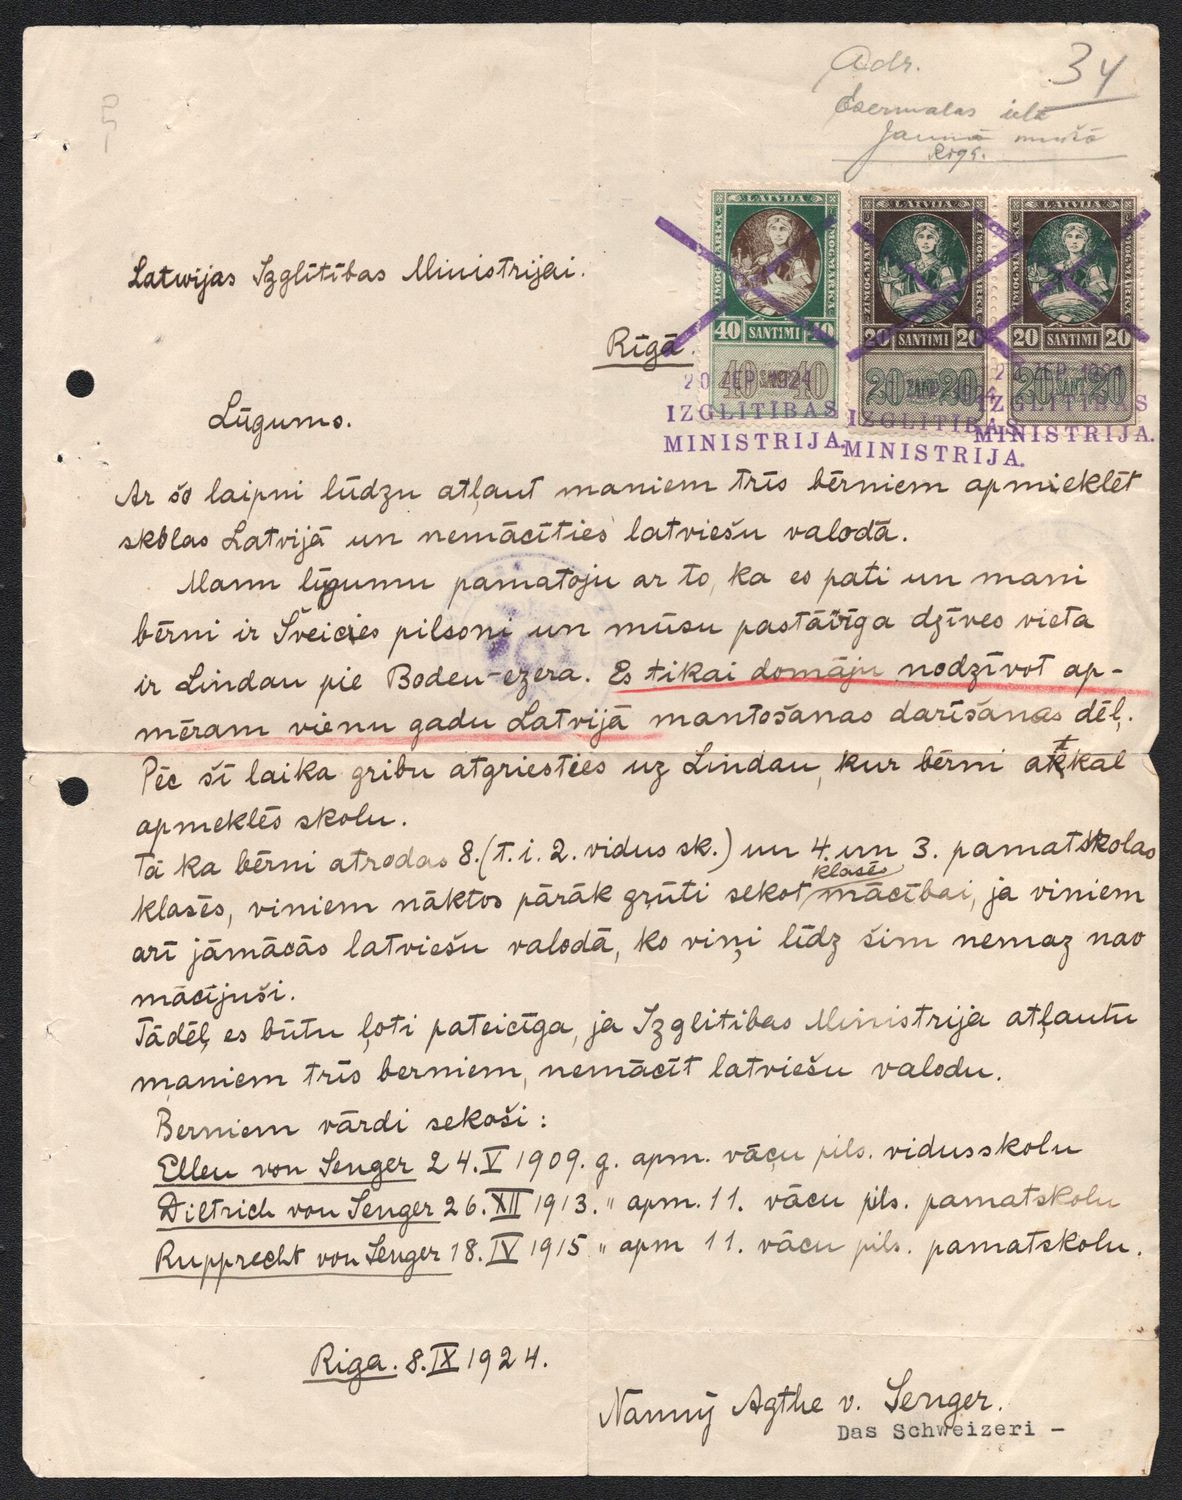 Adr. 34
Esermalas ielā
Jaunā mušā
Rīgā.
LATVIJA LATVIJA LATVIJA
ZĪMOGMARKA ZĪMOGMARKA ZĪMOGMARKA
40 SANTIMI 40 20 SANTIMI 20 20 SANTIMI 20
40 SANT 40 20 SANT 20 20 SANT 20
Latvijas Izglītības Ministrijai.
Rīgā.
20 ZEP. 1924
IZGLĪTĪBAS IZGLĪTĪBAS IZGLĪTĪBAS
MINISTRIJA. MINISTRIJA. MINISTRIJA.
Lūgums.
Ar šo laipni lūdzu atļaut maniem trīs bērniem apmieklēt
skolas Latvijā un nemācīties latviešu valodā.
Manu lūgumu pamatoju ar to, ka es pati un mani
bērni ir Šveicies pilsoni un mūsu pastāvīga dzīves vieta
ir Lindau pie Boden-ezera. Es tikai domāju nodzīvot ap-
mēram vienu gadu Latvijā mantošanas darīšanas dēļ.
Pēc šī laika gribu atgriesties uz Lindau, kur bērni atkal
apmeklēs skolu.
Tā ka bērni atrodas 8. (t. i. 2. vidus sk.) un 4. un 3. pamatskolas
klasēs, viniem nāktos pārāk gŗūti sekot klasēs mācībai, ja viniem
arī jāmācās latviešu valodā, ko viņi līdz šim nemaz nav
mācījuši.
Tādēļ es būtu ļoti pateicīga, ja Izglitibas Ministrija atļautu
maniem trīs berniem, nemācīt latviešu valodu.
Berniem vārdi sekoši:
Ellen von Senger 24. V 1909. g. apm. vāçu pils. vidusskolu
Dietrich von Senger 26. XII 1913. " apm. 11. vācu pils. pamatskolu
Rupprecht von Senger 18. IV 1915 " apm 11. vācu pils. pamatskolu.
Riga. 8. IX 1924.
Nanny Agthe v. Senger.
Das Schweizeri -